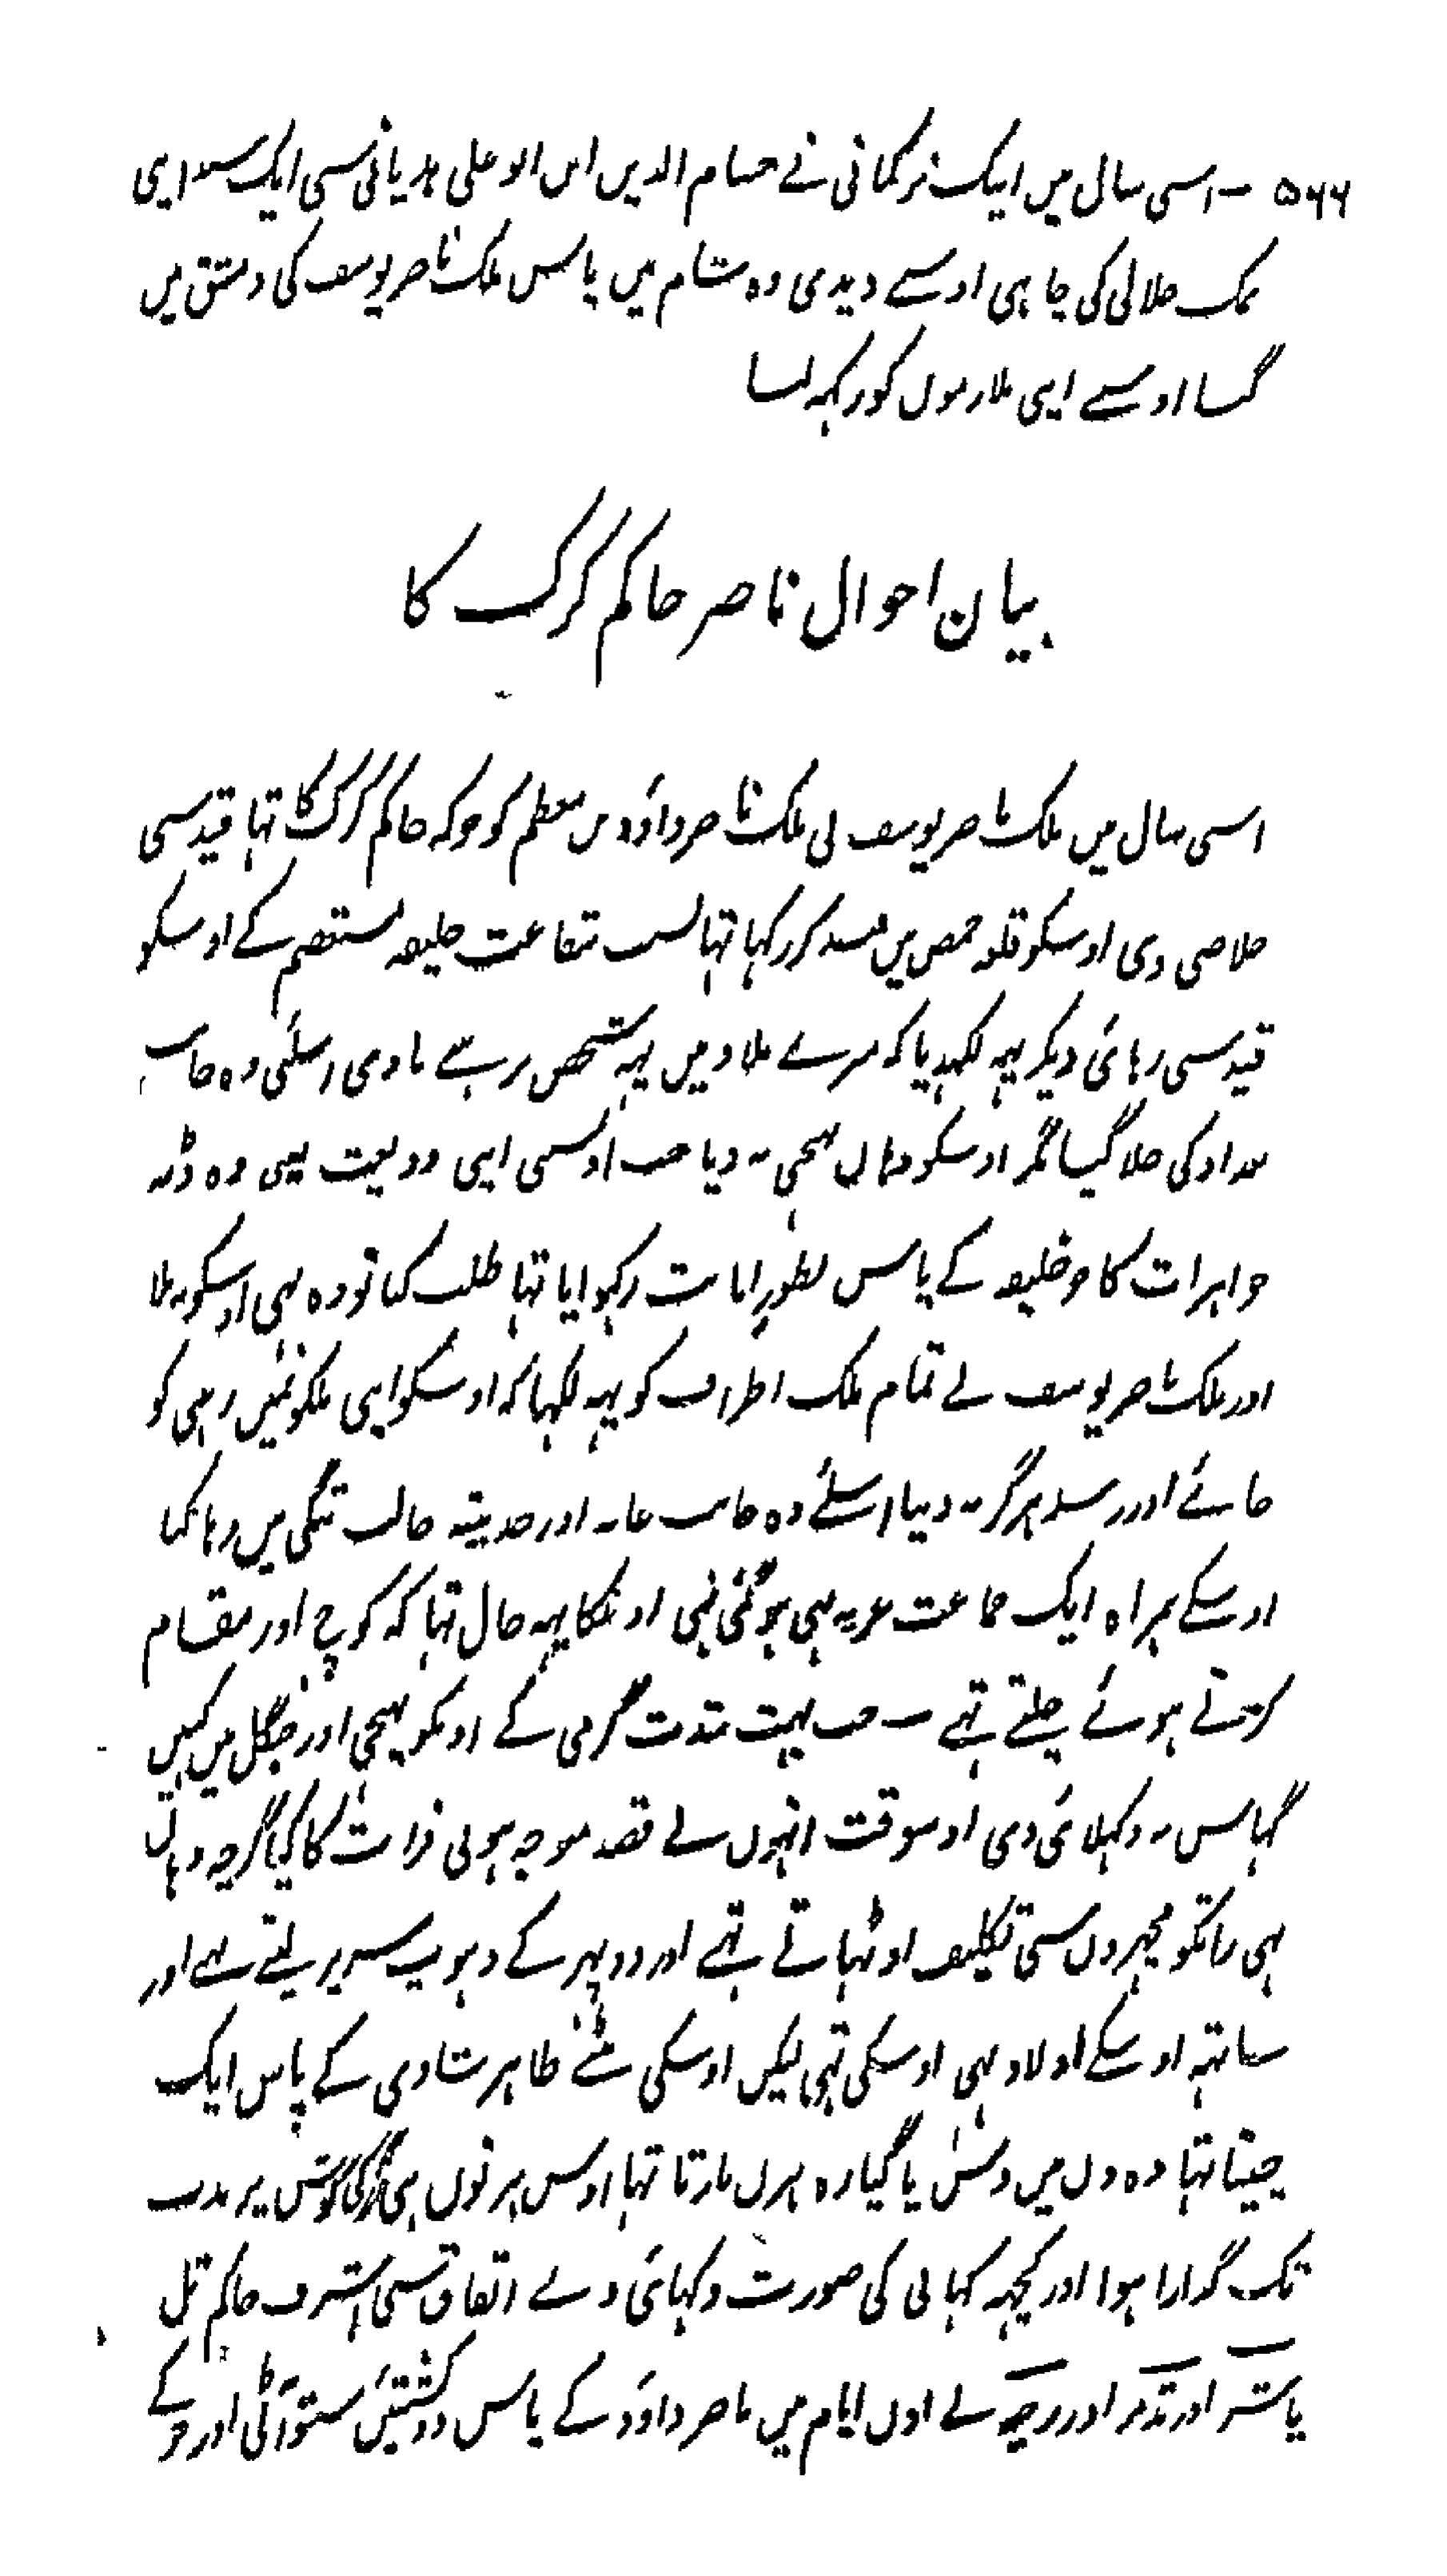 ۵۶۶ — اسی سال میں ایک ترکمانی نے حسام الدین ابن ابو علی ہدبانی سی ایک سند اپنی
نمک حلالی کی چاہی اوسے دیدی وہ شام میں پاس ملک ناصر یوسف کی دمشق میں
گیا اوسے اپنی ملازموں کو رکہہ لیا
بیان احوال ناصر حاکم کرک کا
اسی سال میں ملک ناصر یوسف نی ملک ناصر داؤد بن معظم کو جوکہ حاکم کرک کا تہا قید سی
خلاصی دی اوسکو قلعہ حمص میں قید کر رکہا تہا بسبب شفاعت خلیفہ مستعصم کے اوسکو
قید سی رہائی دیکر یہہ لکہدیا کہ میرے بلاد میں یہہ شخص رہنے نا دی اسلئی وہ جانب
بغداد کی چلا گیا مگر اوسکو وہاں پہنچی نہ دیا جب اوسی اپنی ودیعت یعنی وہ ڈبہ
جواہرات کا جو خلیفہ کے پاس بطور امانت رکہوایا تہا طلب کیا تو وہ بہی اوسکو نہ ملا
اور ملک ناصر یوسف نے تمام ملک اطراف کو یہہ لکہا کہ اوسکو اپنی ملکونمیں رہنی کو
جائے اور رسد ہرگز نہ دینا اسلئے وہ جانب عانہ اور حدیثہ حالت تنگی میں رہا کیا
اوسکے ہمراہ ایک جماعت عربیہ بہی ہوگئی تہی اونکا یہہ حال تہا کہ کوچ اور مقام
کرتے ہوئے چلتے تہے — جب بہت شدت گرمی کے اونکو پہنچی اور جنگل میں کہیں
گہاس نہ دکہلائی دی اوسوقت انہوں نے قصد موجہ ہونی فرات کا کیا گرچہ وہاں
بہی راتکو مچہروں سی تکلیف اوٹہاتے تہے اور دوپہر کے دہوپ سرپر لیتے تہے اور
ساتہہ اوسکے اولاد بہی اوسکی تہی لیکن اوسکی بیٹے ظاہر شادی کے پاس ایک
چیتا تہا وہ دن میں دس یا گیارہ ہرن مارتا تہا اوس ہرنوں ہی کی گوشت پر مدت
تک گذارا ہوا اور کچہہ کہانی کی صورت دکہائی دے اتفاق سی اشرف حاکم تل
باشر اور تدمر اور رحبہ نے اول ایام میں ناصر داؤد کے پاس دو کشتیں ستو آٹی اور جو کے